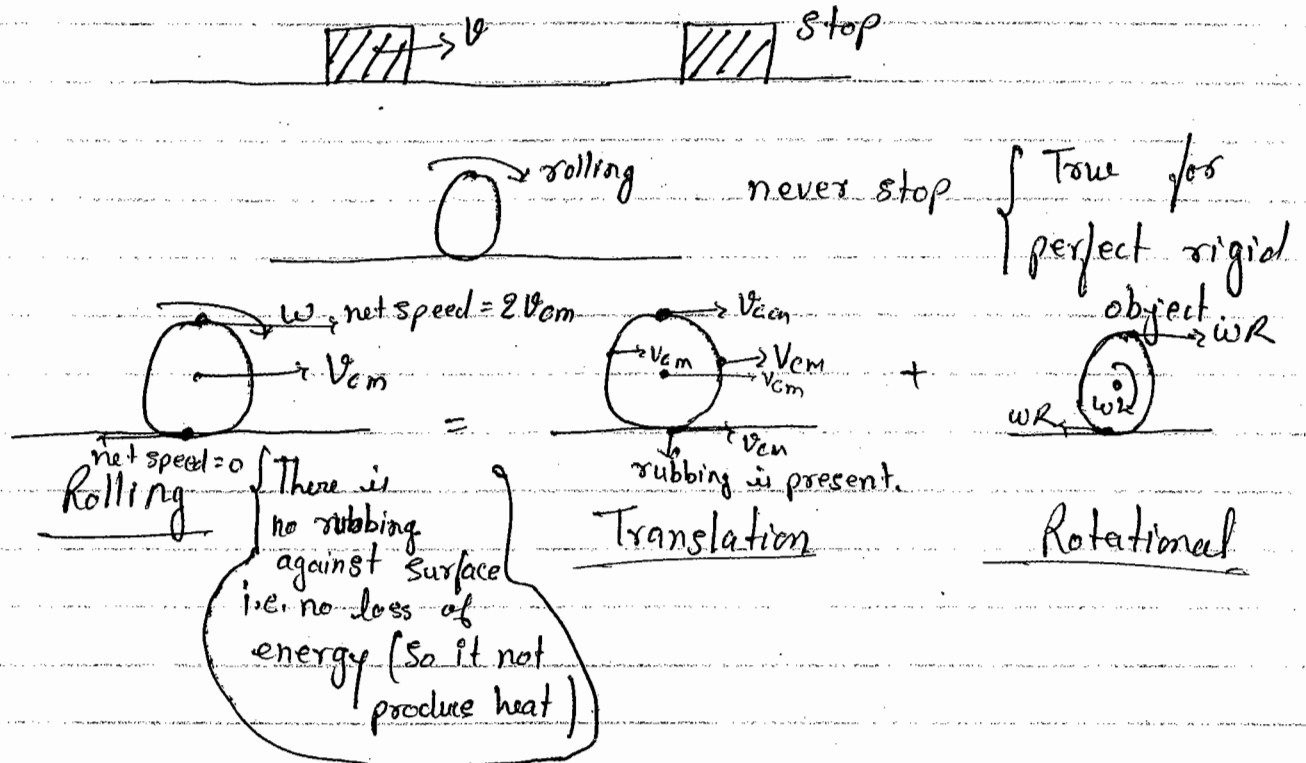 v
stop
rolling
never stop { True for
perfect rigid
object.
ω net speed = 2Vcm
Vcm
net speed = 0
Rolling
{ There is
no rubbing
against surface
i.e. no loss of
energy (So it not
produce heat)
=
Vcm
Vcm
Vcm
Vcm
Vcm
rubbing is present.
Translation
+
ωR
ωR
Rotational